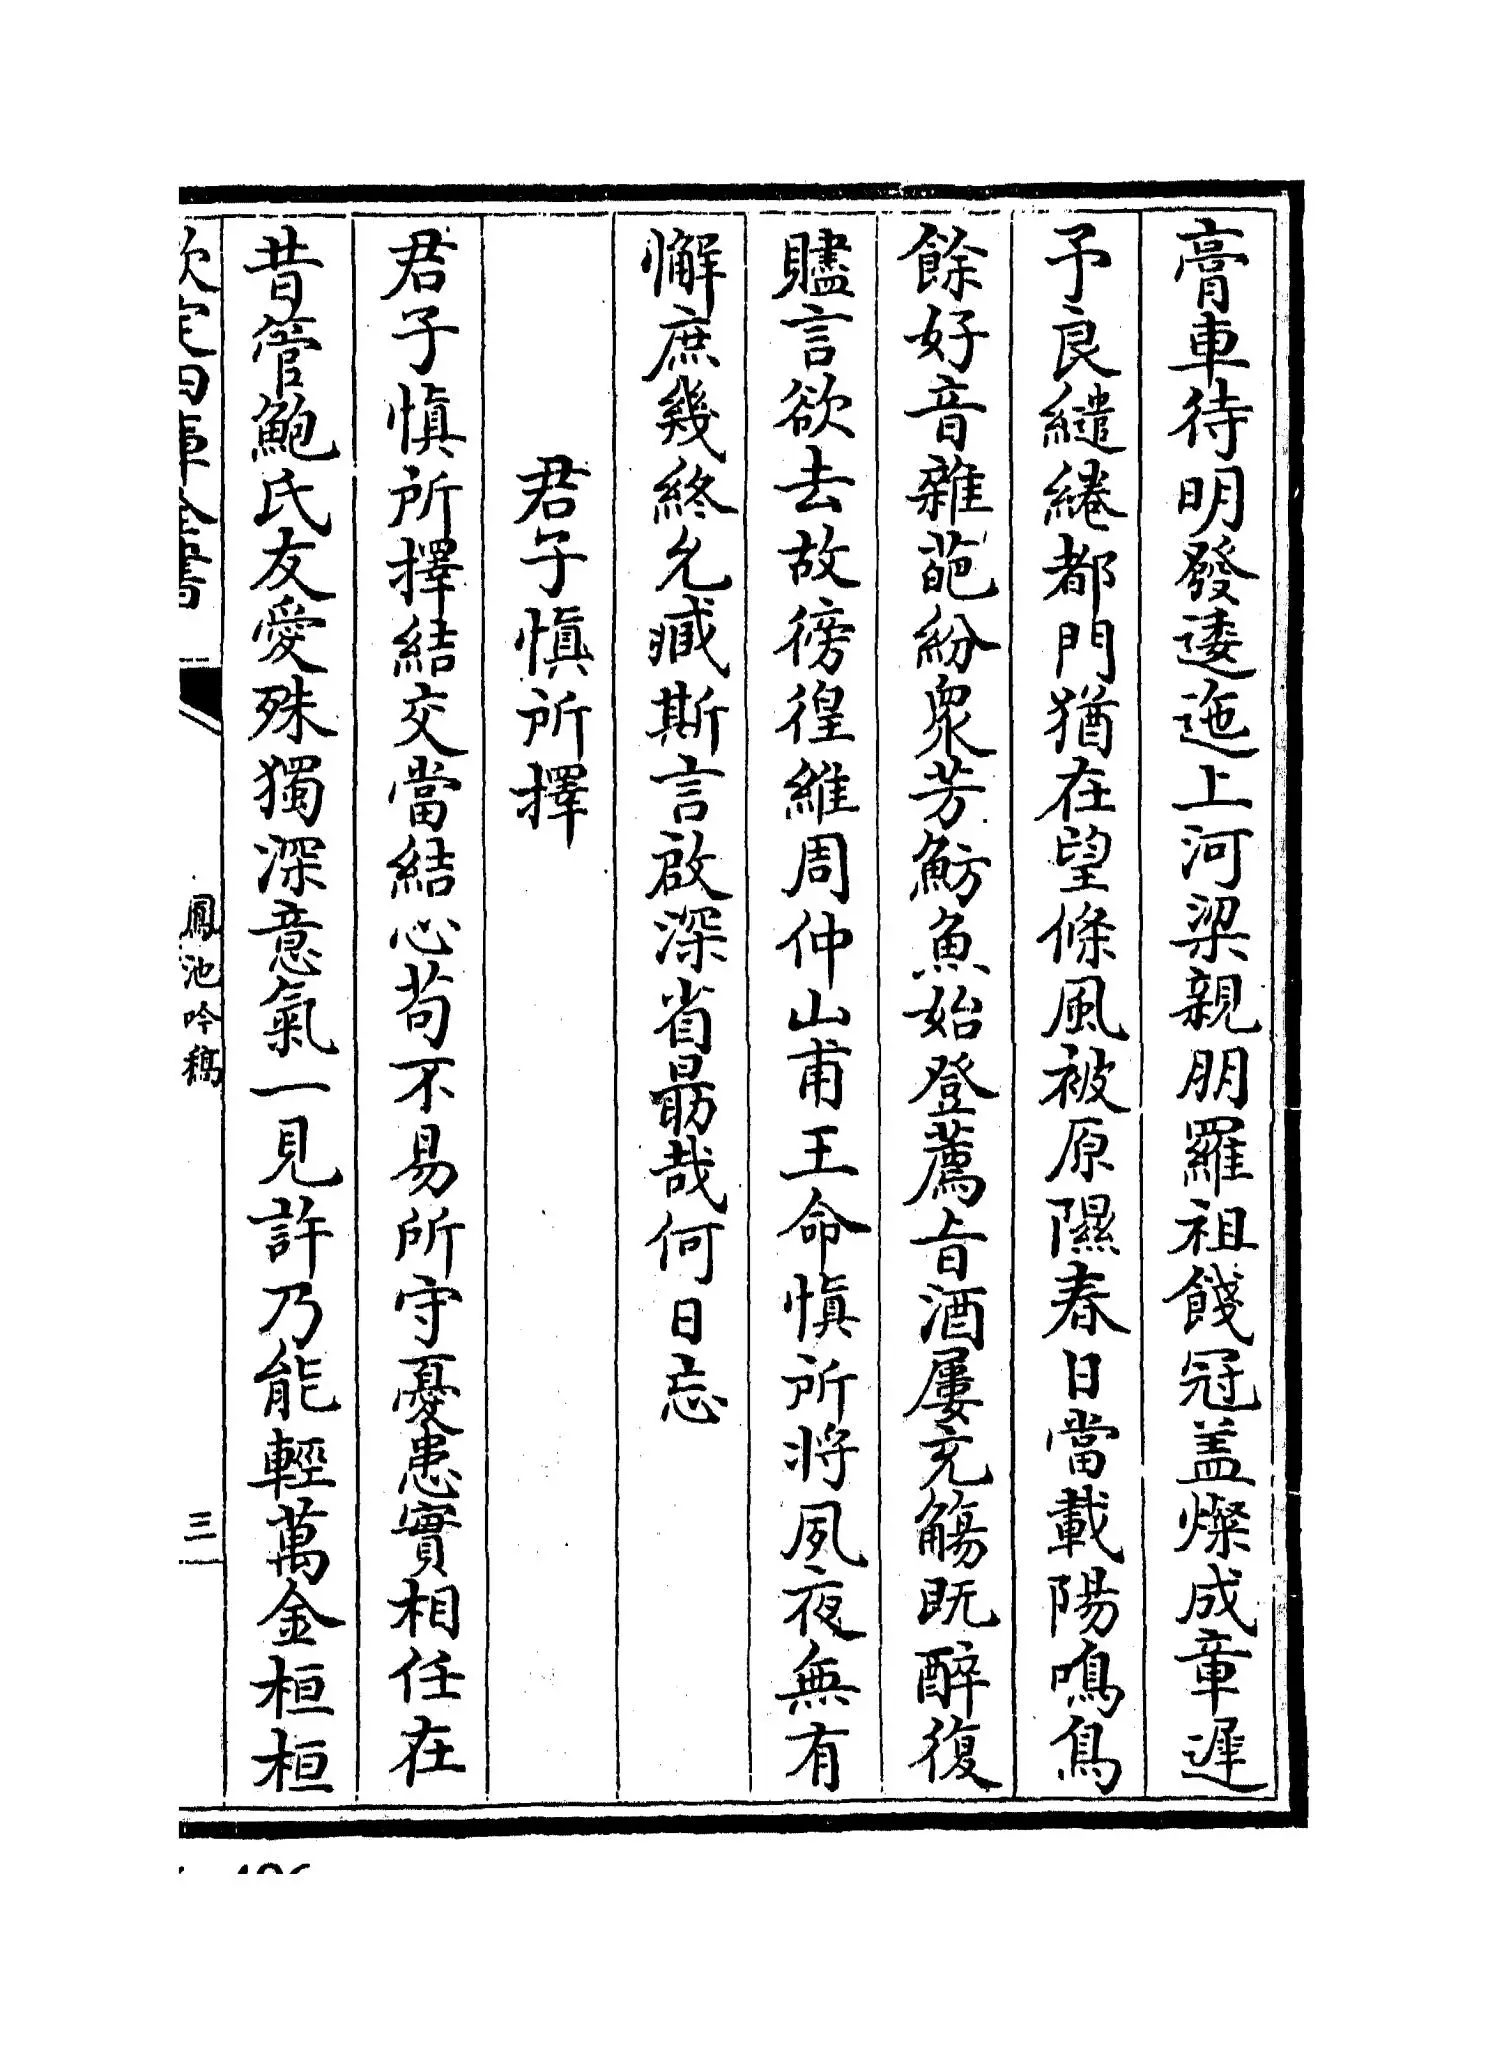 膏車待明發逶迤上河梁親朋羅祖餞冠盖燦成章遲
予良繾綣都門猶在望條風被原隰春日當載陽鳴鳥
餘好音雜葩紛衆芳魴魚始登薦旨酒屢充觴既醉復
贐言欲去故徬徨維周仲山甫王命慎所將夙夜無有
懈庶幾終允臧斯言啟深省勗哉何日忘
君子慎所擇
君子慎所擇結交當結心苟不易所守憂患實相任在
昔管鮑氏友愛殊獨深意氣一見許乃能輕萬金桓桓
欽定四庫全書
鳳池吟稿
三